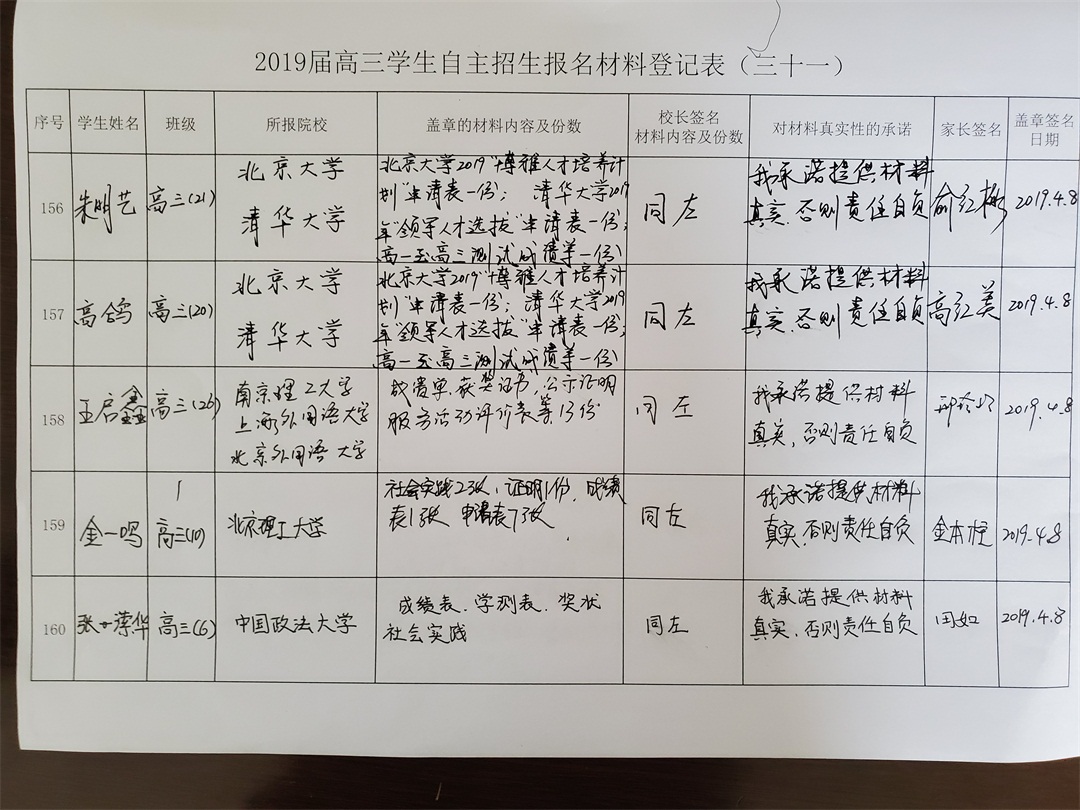 2019届高三学生自主招生报名材料登记表（三十一）
序号 学生姓名 班级 所报院校 盖章的材料内容及份数 校长签名材料内容及份数 对材料真实性的承诺 家长签名 盖章签名日期
156 朱明艺 高三(21) 北京大学 清华大学 北京大学2019"博雅人才培养计划"申请表一份； 清华大学2019年"领军人才选拔"申请表一份；高一至高三测试成绩单一份 同左 我承诺提供材料真实，否则责任自负 俞红梅 2019.4.8
157 高鸽 高三(20) 北京大学 清华大学 北京大学2019"博雅人才培养计划"申请表一份； 清华大学2019年"领军人才选拔"申请表一份；高一至高三测试成绩单一份 同左 我承诺提供材料真实，否则责任自负 高红美 2019.4.8
158 王启鑫 高三(26) 南京理工大学 上海外国语大学 北京外国语大学 成绩单，获奖证书，公示证明 服务活动评价表等13份 同左 我承诺提供材料真实，否则责任自负 2019.4.8
159 金一鸣 高三(10) 北京理工大学 社会实践23张，证明1份，成绩表1张 申请表7张 同左 我承诺提供材料真实，否则责任自负 金本 2019.4.8
160 张 华 高三(6) 中国政法大学 成绩表、学测表、奖状 社会实践 同左 我承诺提供材料真实，否则责任自负 田如 2019.4.8